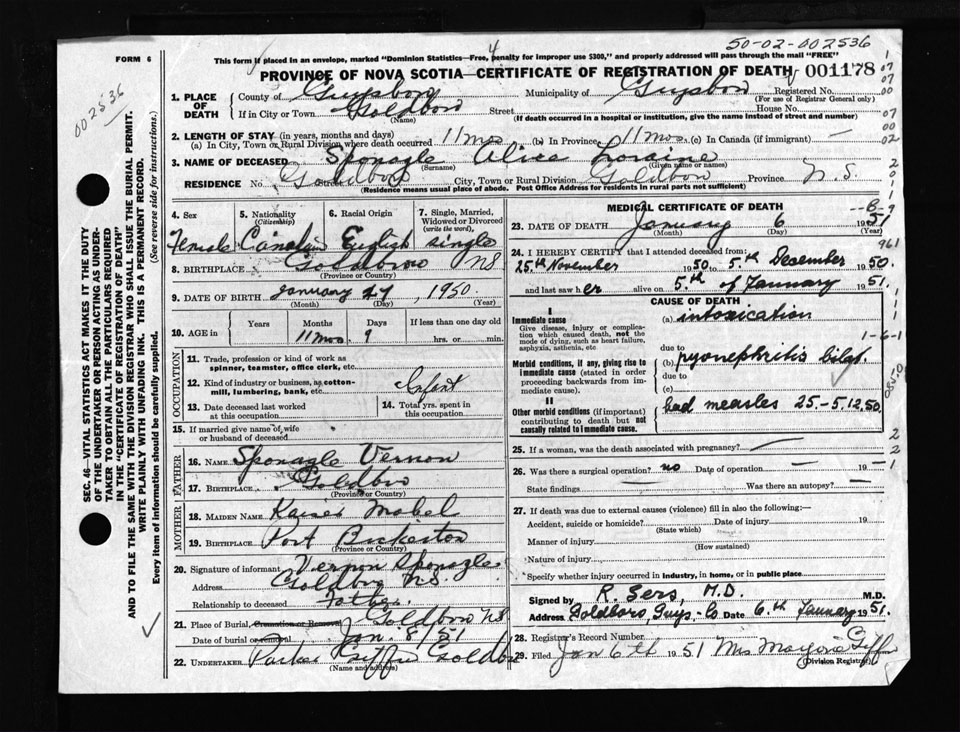 50-02-002536
FORM 6
This form if placed in an envelope, marked "Dominion Statistics—Free, penalty for improper use $300," and properly addressed will pass through the mail "FREE"
4
PROVINCE OF NOVA SCOTIA—CERTIFICATE OF REGISTRATION OF DEATH 001178
002536
1. PLACE OF DEATH
County of Guysboro Municipality of Guysboro Registered No.
(For use of Registrar General only)
If in City or Town Goldboro Street House No.
(Name) (If death occurred in a hospital or institution, give the name instead of street and number)
2. LENGTH OF STAY (in years, months and days)
(a) In City, Town or Rural Division where death occurred 11 mos (b) In Province 11 mos. (c) In Canada (if immigrant) —
3. NAME OF DECEASED Sponagle Alice Loraine
(Surname) (Given name or names)
RESIDENCE No. Goldboro Street City, Town or Rural Division Goldboro Province N.S.
(Residence means usual place of abode. Post Office Address for residents in rural parts not sufficient)
4. Sex 5. Nationality (Citizenship) 6. Racial Origin 7. Single, Married, Widowed or Divorced (write the word)
Female Canadian English single
8. BIRTHPLACE Goldboro NS
(Province or Country)
9. DATE OF BIRTH January 27, 1950
(Month) (Day) (Year)
10. AGE in Years Months Days If less than one day old
11 mos. 9 hrs. or min.
OCCUPATION
11. Trade, profession or kind of work as spinner, teamster, office clerk, etc.
12. Kind of industry or business, as cotton-mill, lumbering, bank, etc. Infant
13. Date deceased last worked at this occupation
14. Total yrs. spent in this occupation
15. If married give name of wife or husband of deceased
FATHER
16. Name Sponagle Vernon
17. Birthplace Goldboro
(Province or Country)
MOTHER
18. Maiden Name Kaiser Mabel
19. Birthplace Port Bickerton
(Province or Country)
20. Signature of informant Vernon Sponagle
Address Goldboro N.S.
Relationship to deceased Father
21. Place of Burial, Cremation or Removal Goldboro NS
Date of burial or removal Jan. 8/51
22. UNDERTAKER Parker Giffin Goldboro
MEDICAL CERTIFICATE OF DEATH
23. DATE OF DEATH January 6 1951
(Month) (Day) (Year)
24. I HEREBY CERTIFY that I attended deceased from:
25th November 1950 to 5th December 1950.
and last saw her alive on 5th of January 1951.
CAUSE OF DEATH
I
Immediate cause
Give disease, injury or complication which caused death, not the mode of dying, such as heart failure, asphyxia, asthenia, etc
(a) intoxication
due to
Morbid conditions, if any, giving rise to immediate cause (stated in order proceeding backwards from immediate cause).
(b) pyonephritis bilat.
due to
(c)
II
Other morbid conditions (if important) contributing to death but not causally related to immediate cause.
had measles 25.-5.12.50.
961
1-6-1
25. If a woman, was the death associated with pregnancy? —
26. Was there a surgical operation? no Date of operation — 19 —
State findings — Was there an autopsy? —
27. If death was due to external causes (violence) fill in also the following:—
Accident, suicide or homicide? Date of injury 19
(State which)
Manner of injury
(How sustained)
Nature of injury
Specify whether injury occurred in industry, in home, or in public place
Signed by R. Sers, M.D. M.D.
Address Goldboro, Guys. Co Date 6.th January 1951.
28. Registrar's Record Number
29. Filed Jan 6th 1951 Mrs Marjorie Giffin
(Division Registrar)
SEC. 46—VITAL STATISTICS ACT MAKES IT THE DUTY
OF THE UNDERTAKER OR PERSON ACTING AS UNDER-
TAKER TO OBTAIN ALL THE PARTICULARS REQUIRED
IN THE "CERTIFICATE OF REGISTRATION OF DEATH"
AND TO FILE THE SAME WITH THE DIVISION REGISTRAR WHO SHALL ISSUE THE BURIAL PERMIT.
WRITE PLAINLY WITH UNFADING INK. THIS IS A PERMANENT RECORD.
Every item of information should be carefully supplied. (See reverse side for instructions.)